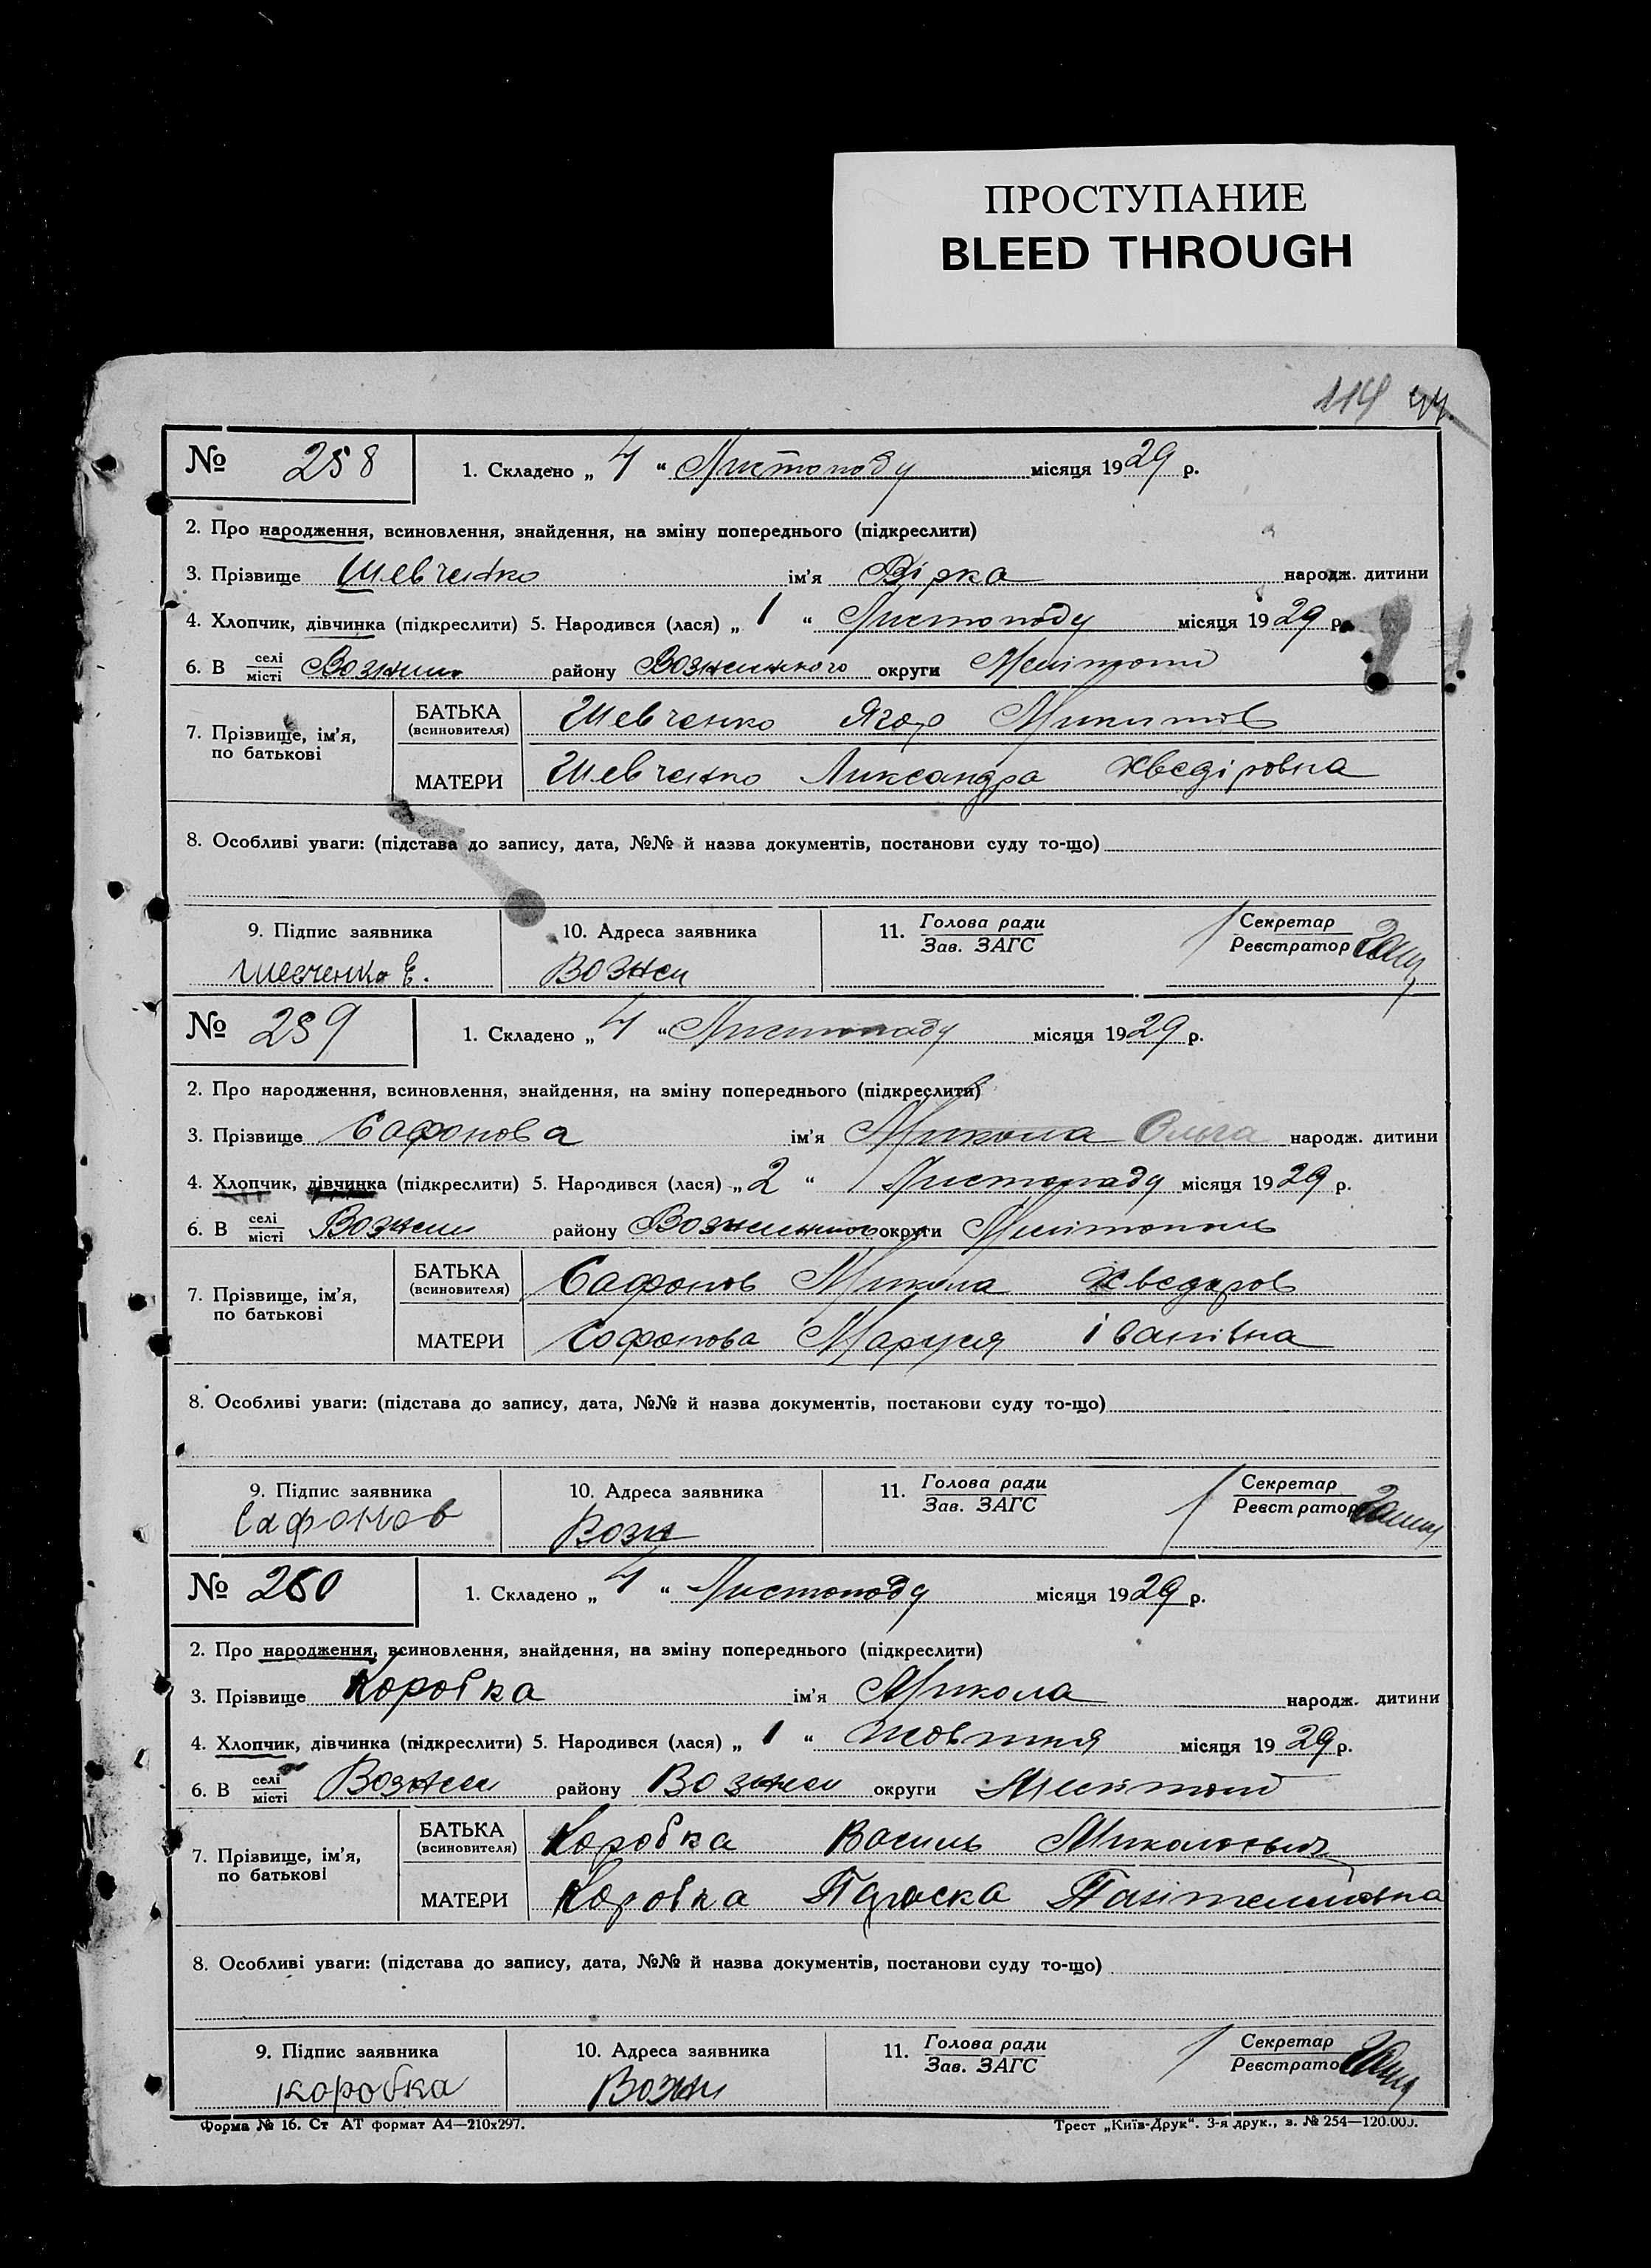 ПРОСТУПАНИЕ
BLEED THROUGH
114
№ 258 1. Складено „ 4 “ Листопаду місяця 1929 р.
2. Про народження, всиновлення, знайдення, на зміну попереднього (підкреслити)
3. Прізвище Шевченко ім’я Вірка народж. дитини
4. Хлопчик, дівчинка (підкреслити) 5. Народився (лася) „ 1 “ Листопаду місяця 1929 р.
6. В селі місті району округи
7. Прізвище, ім’я, по батькові
БАТЬКА (всиновителя) Шевченко Ягор
МАТЕРИ Шевченко Ликсандра Хведіровна
8. Особливі уваги: (підстава до запису, дата, №№ й назва документів, постанови суду то-що)
9. Підпис заявника 10. Адреса заявника 11. Голова ради Зав. ЗАГС Секретар Реєстратор
Шевченко Е. Вознеи
№ 259 1. Складено „ 4 “ Листопаду місяця 1929 р.
2. Про народження, всиновлення, знайдення, на зміну попереднього (підкреслити)
3. Прізвище Сафонова ім’я Микола Ольга народж. дитини
4. Хлопчик, дівчинка (підкреслити) 5. Народився (лася) „ 2 “ Листопаду місяця 1929 р.
6. В селі місті району округи
7. Прізвище, ім’я, по батькові
БАТЬКА (всиновителя) Сафонов Микола Хведоров
МАТЕРИ Сафонова Маруся Іванівна
8. Особливі уваги: (підстава до запису, дата, №№ й назва документів, постанови суду то-що)
9. Підпис заявника 10. Адреса заявника 11. Голова ради Зав. ЗАГС Секретар Реєстратор
Сафонов Возн
№ 260 1. Складено „ 4 “ Листопаду місяця 1929 р.
2. Про народження, всиновлення, знайдення, на зміну попереднього (підкреслити)
3. Прізвище Коробка ім’я Микола народж. дитини
4. Хлопчик, дівчинка (підкреслити) 5. Народився (лася) „ 1 “ Жовтня місяця 1929 р.
6. В селі місті району округи
7. Прізвище, ім’я, по батькові
БАТЬКА (всиновителя) Коробка Василь Миколович
МАТЕРИ Коробка Параска
8. Особливі уваги: (підстава до запису, дата, №№ й назва документів, постанови суду то-що)
9. Підпис заявника 10. Адреса заявника 11. Голова ради Зав. ЗАГС Секретар Реєстратор
Коробка
Форма № 16. Ст АТ формат А4—210х297. Трест „Київ-Друк“. 3-я друк., з. № 254—120.000.